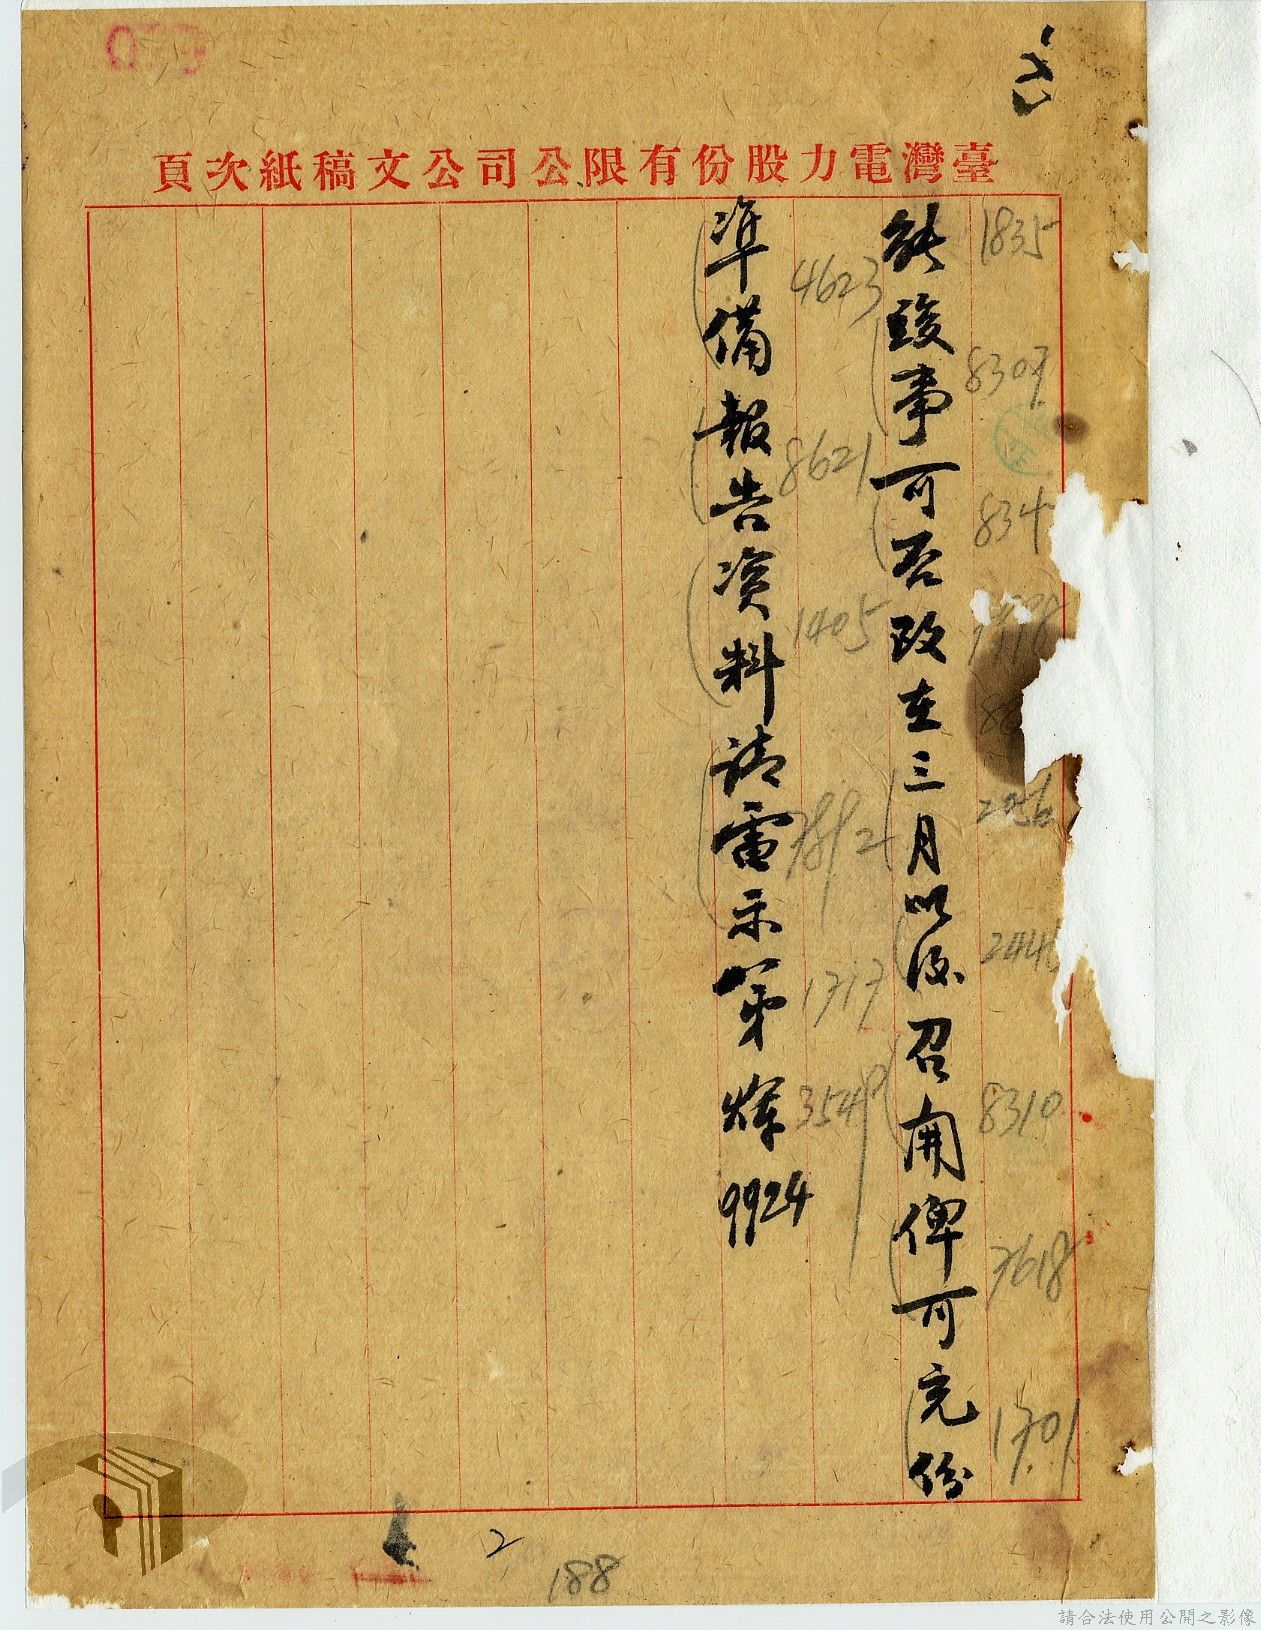 臺灣電力股份有限公司公文稿紙次頁
能竣事可否改在三月以後召開俾可充份
準備報告資料請電示第輝9924
1835
8307
834
2056
244
8310
7618
1701
4623
8621
1405
7892
1717
3549
2
188
請合法使用公開之影像